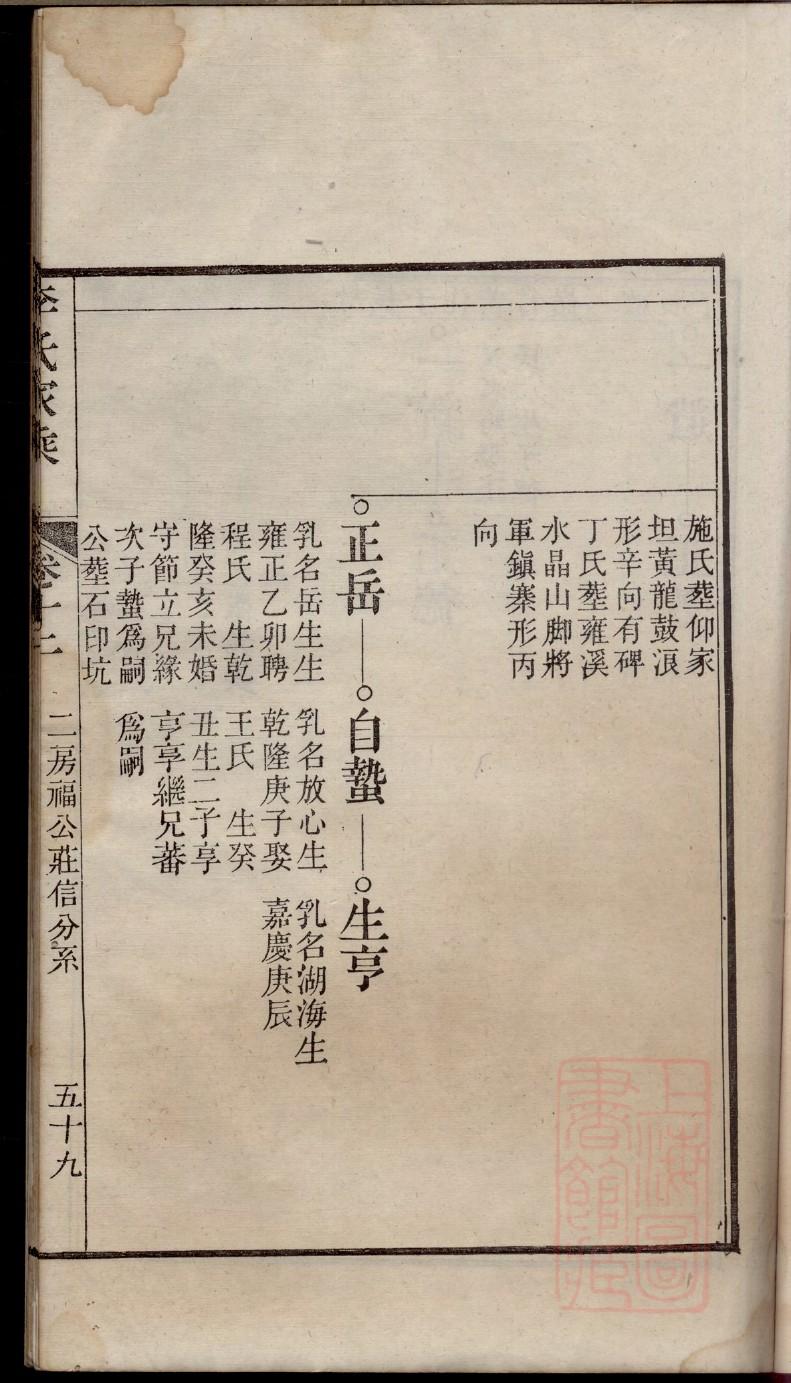 施氏塟仰家
坦黃龍鼓浪
形辛向有碑
丁氏塟雍溪
水晶山脚將
軍鎭寨形丙
向
正岳
乳名岳生生
雍正乙卯聘
程氏　生乾
隆癸亥未婚
守節立兄緣
次子蟄爲嗣
公塟石印坑
自蟄
乳名放心生
乾隆庚子娶
王氏　生癸
丑生二子享
亨享繼兄蕃
爲嗣
生亨
乳名湖海生
嘉慶庚辰
李氏家乘
卷十二
二房福公莊信分系
五十九
上海圖
書館藏